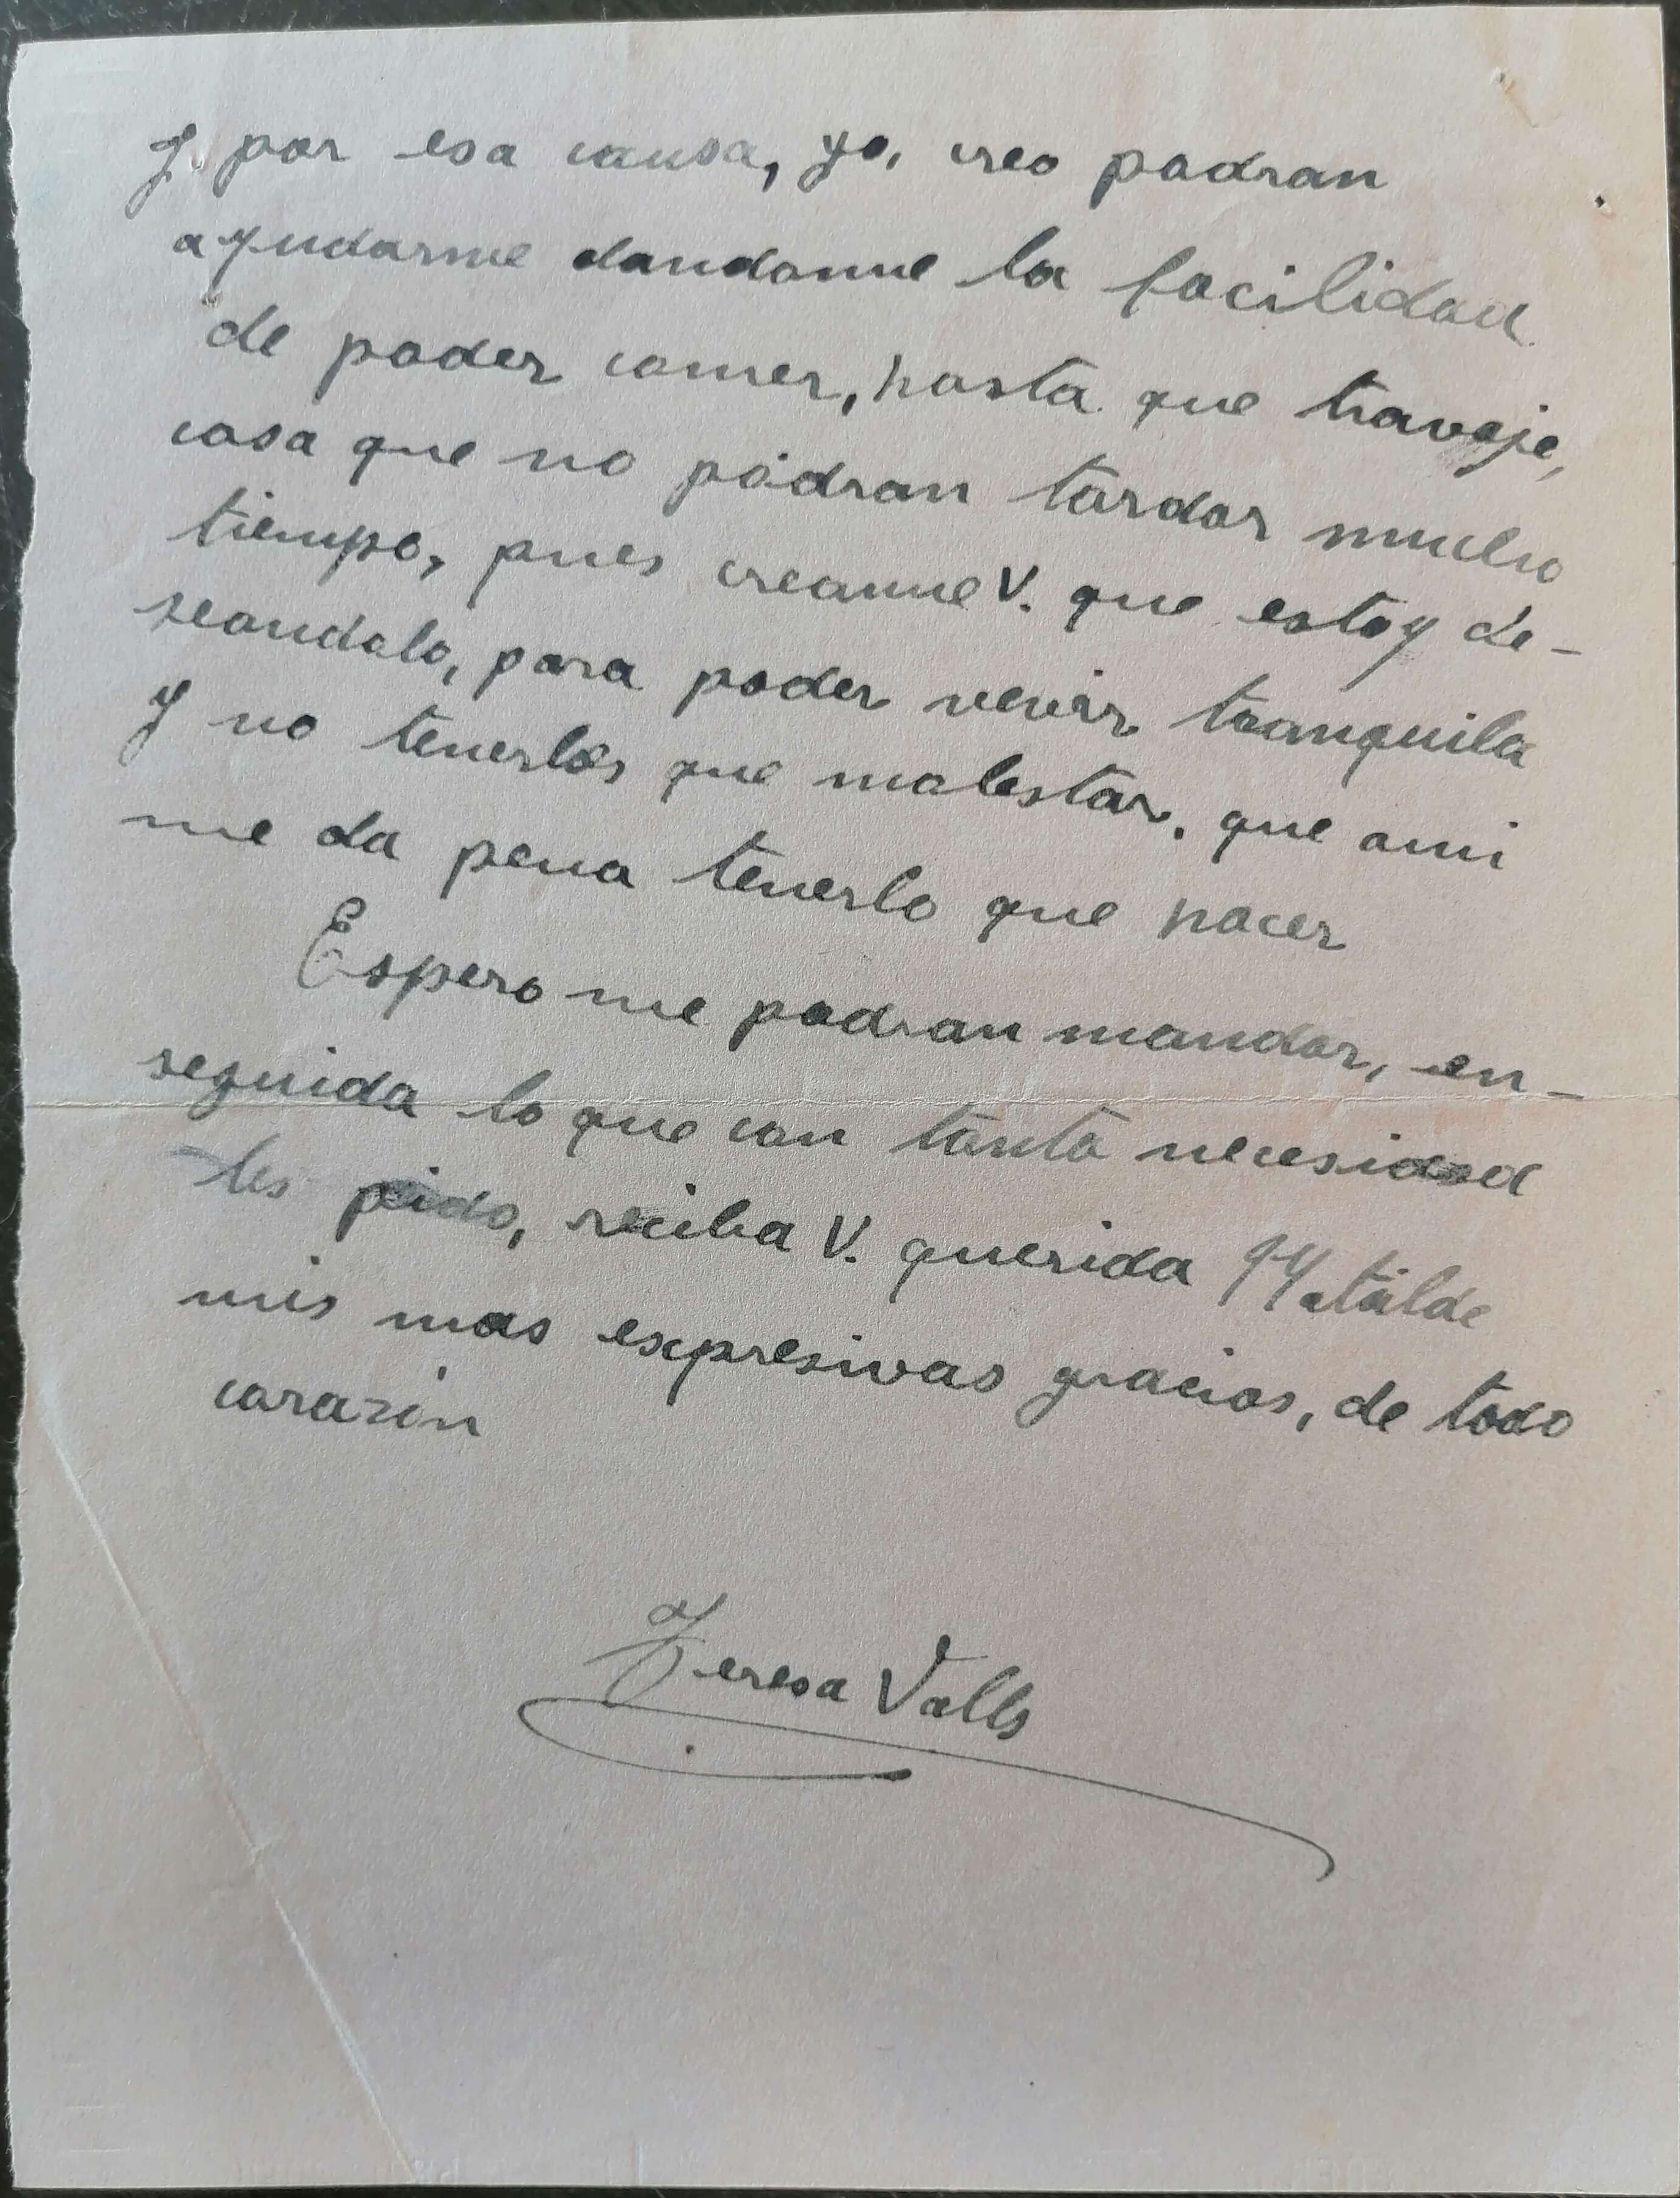 y por esa causa, yo, creo podran
ayudarme dandome la facilidad
de poder comer, hasta que travaje,
cosa que no podran tardar mucho
tiempo, pues creame V. que estoy de-
seandolo, para poder vivir tranquila
y no tenerlos que molestar, que ami
me da pena tenerlo que hacer
Espero me podran mandar, en-
seguida lo que con tanta necesidad
les pido, reciba V. querida Matilde
mis mas expresivas gracias, de todo
corazón
Teresa Valls